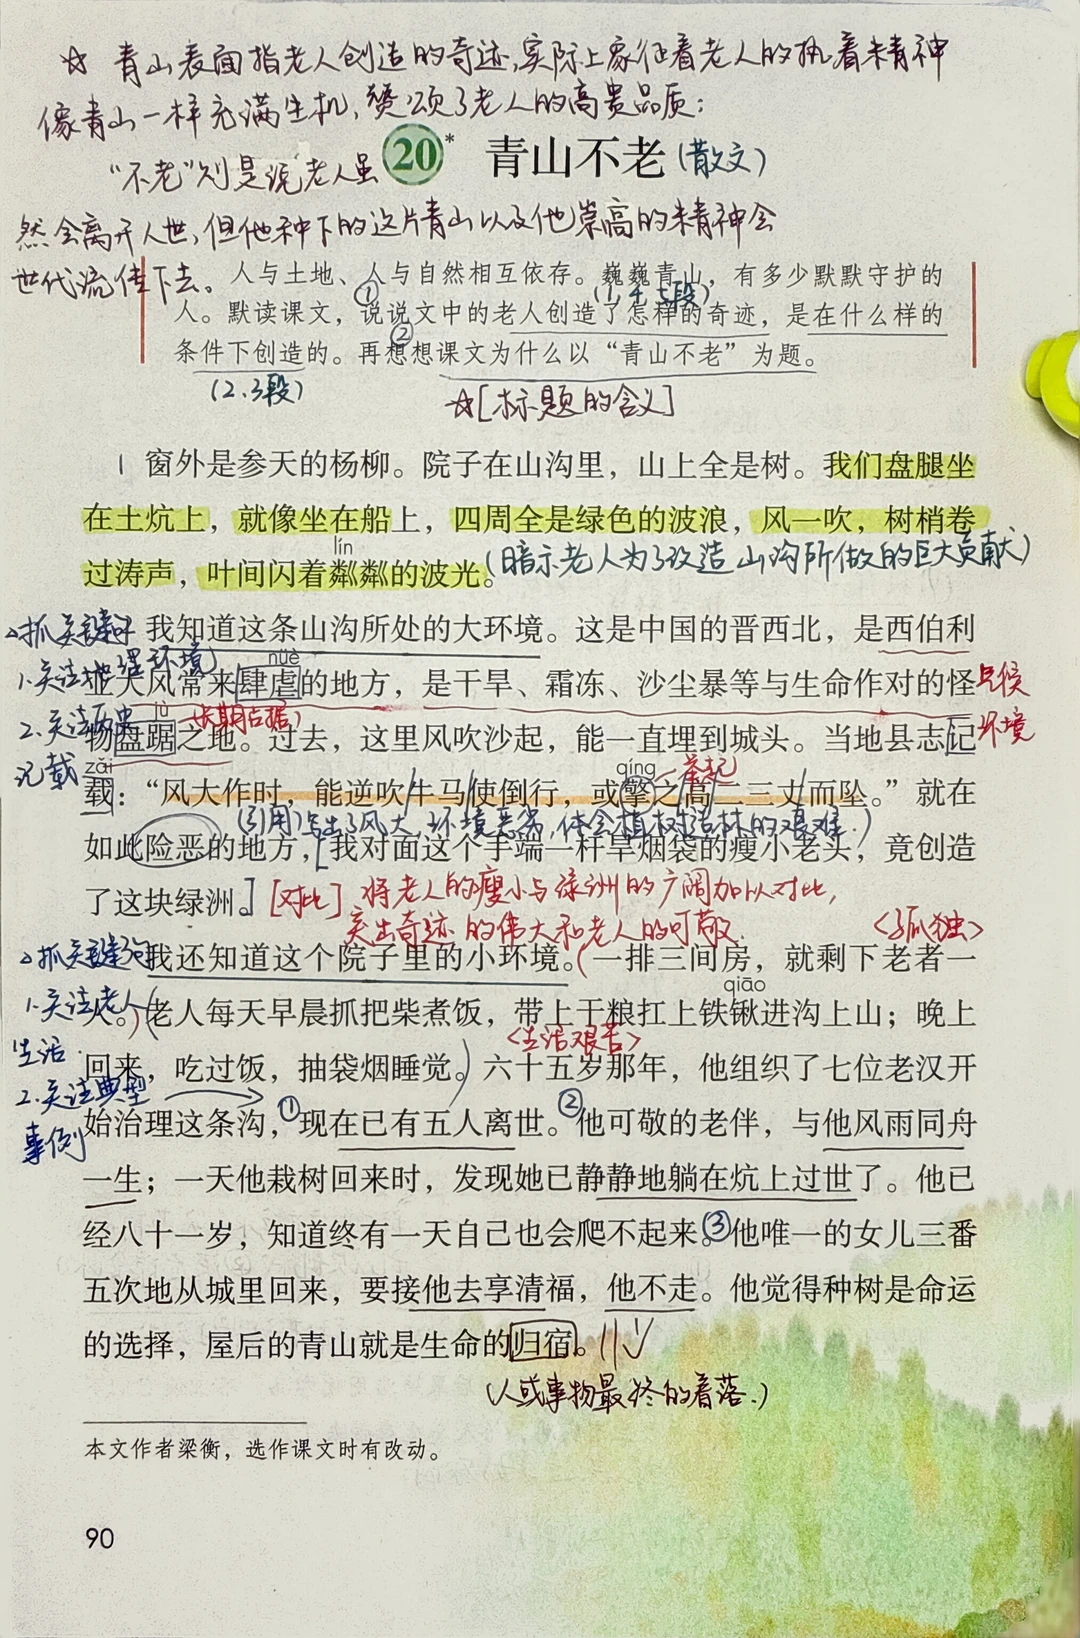 ☆ 青山表面指老人创造的奇迹,实际上象征着老人的执着精神
像青山一样充满生机,赞颂了老人的高贵品质;
"不老"则是说老人虽
20* 青山不老(散文)
然会离开人世,但他种下的这片青山以及他崇高的精神会
世代流传下去。
人与土地、人与自然相互依存。巍巍青山，有多少默默守护的
① (1,4,5段)
人。默读课文，说说文中的老人创造了怎样的奇迹，是在什么样的
②
条件下创造的。再想想课文为什么以“青山不老”为题。
(2.3段)
☆[标题的含义]
1 窗外是参天的杨柳。院子在山沟里，山上全是树。我们盘腿坐
在土炕上，就像坐在船上，四周全是绿色的波浪，风一吹，树梢卷
lín
过涛声，叶间闪着粼粼的波光。
(暗示老人为了改造山沟所做的巨大贡献)
抓关键词
我知道这条山沟所处的大环境。这是中国的晋西北，是西伯利
1.关注地理环境
nüè
亚大风常来肆虐的地方，是干旱、霜冻、沙尘暴等与生命作对的怪
气候
环境
2.关注历史
记载
jù
(长期占据)
物盘踞之地。过去，这里风吹沙起，能一直埋到城头。当地县志记
zǎi
qíng
举起
载：“风大作时，能逆吹牛马使倒行，或擎之高二三丈而坠。”就在
(引用)写出了风大,环境恶劣,体会植树造林的艰难.)
如此险恶的地方，[我对面这个手端一杆旱烟袋的瘦小老头，竟创造
了这块绿洲。]
[对比] 将老人的瘦小与绿洲的广阔加以对比,
突出奇迹的伟大和老人的可敬.
<孤独>
抓关键词
我还知道这个院子里的小环境。(一排三间房，就剩下老者一
1.关注老人
生活
qiāo
人。)(老人每天早晨抓把柴煮饭，带上干粮扛上铁锹进沟上山；晚上
<生活艰苦>
回来，吃过饭，抽袋烟睡觉。)六十五岁那年，他组织了七位老汉开
2.关注典型
事例
始治理这条沟，①现在已有五人离世。②他可敬的老伴，与他风雨同舟
一生；一天他栽树回来时，发现她已静静地躺在炕上过世了。他已
经八十一岁，知道终有一天自己也会爬不起来。③他唯一的女儿三番
五次地从城里回来，要接他去享清福，他不走。他觉得种树是命运
的选择，屋后的青山就是生命的归宿。
(人或事物最终的着落.)
本文作者梁衡，选作课文时有改动。
90